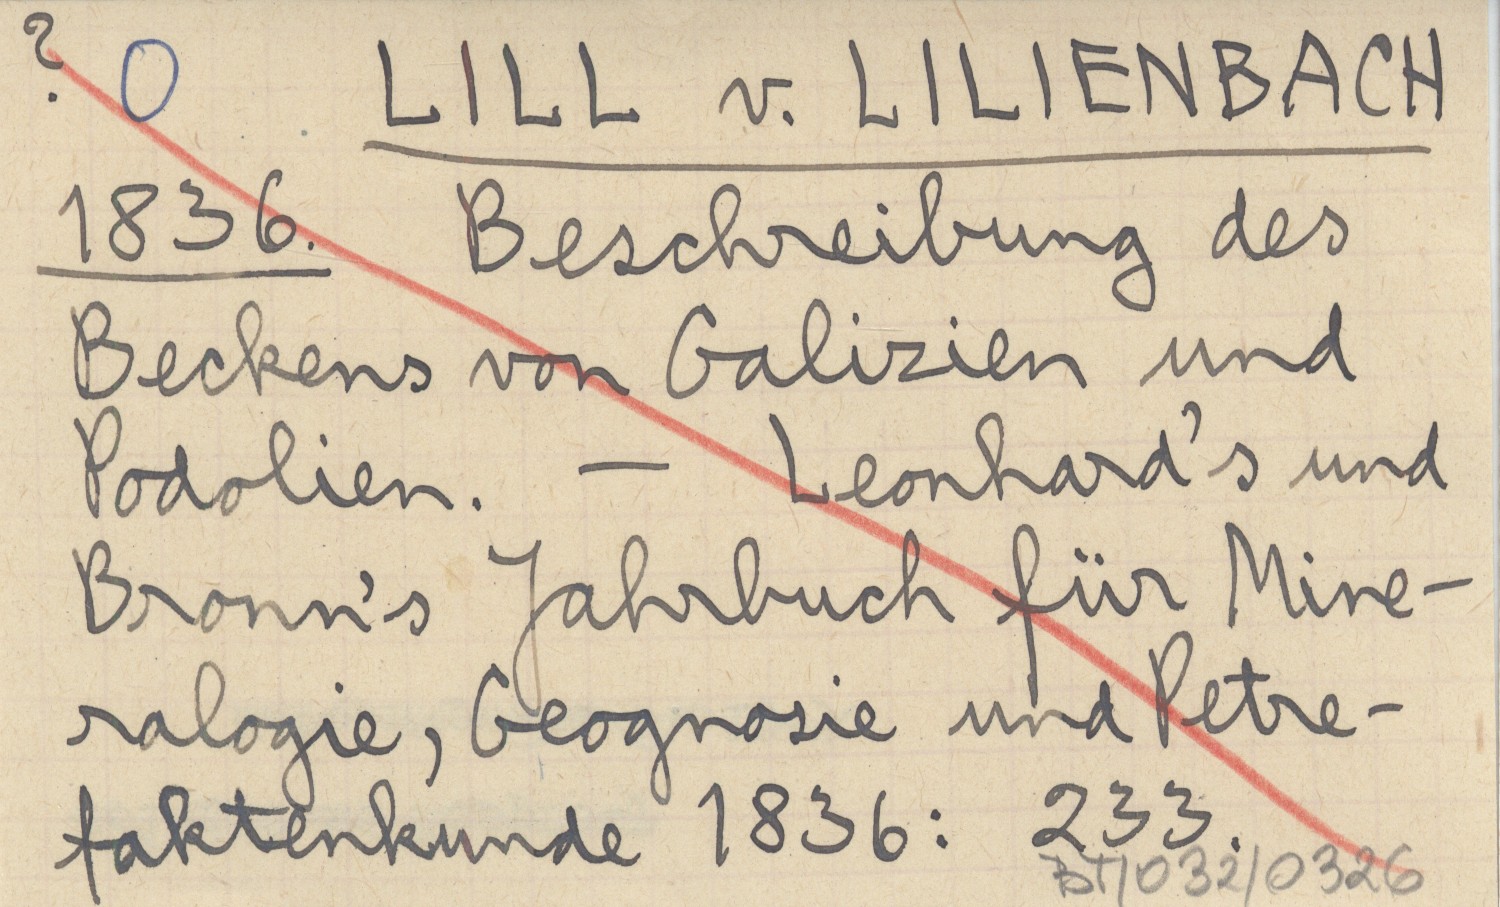 ? O LILL v. LILIENBACH
1836. Beschreibung des
Beckens von Galizien und
Podolien. — Leonhard's und
Bronn's Jahrbuch für Mine-
ralogie, Geognosie und Petre-
faktenkunde 1836: 233.
BT/032/0326